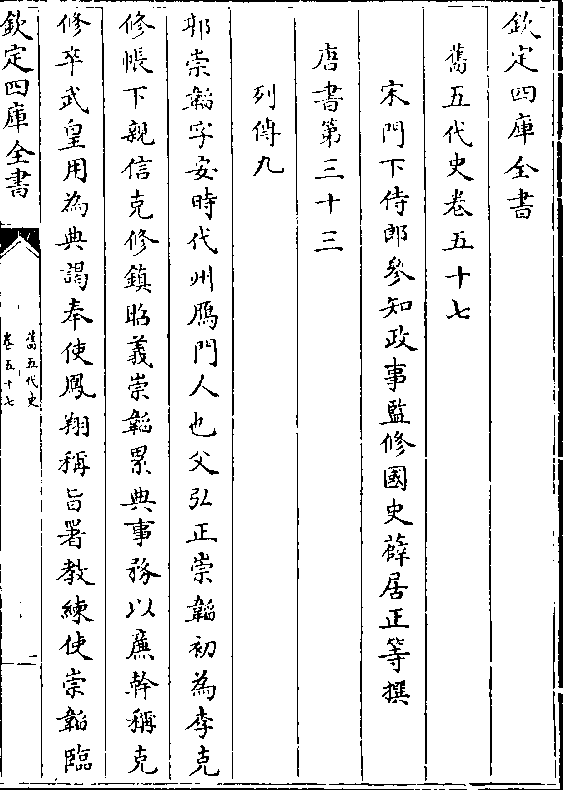 欽定四庫全書
舊五代史卷五十七
宋門下侍郎參知政事監修國史薛居正等撰
唐書第三十三
列傳九
郭崇韜字安時代州鴈門人也父弘正崇韜初為李克
修帳下親信克修鎮昭義崇韜累典事務以廉幹稱克
修卒武皇用為典謁奉使鳳翔稱旨署教練使崇韜臨
欽定四庫全書
舊五代史
卷五十七
一